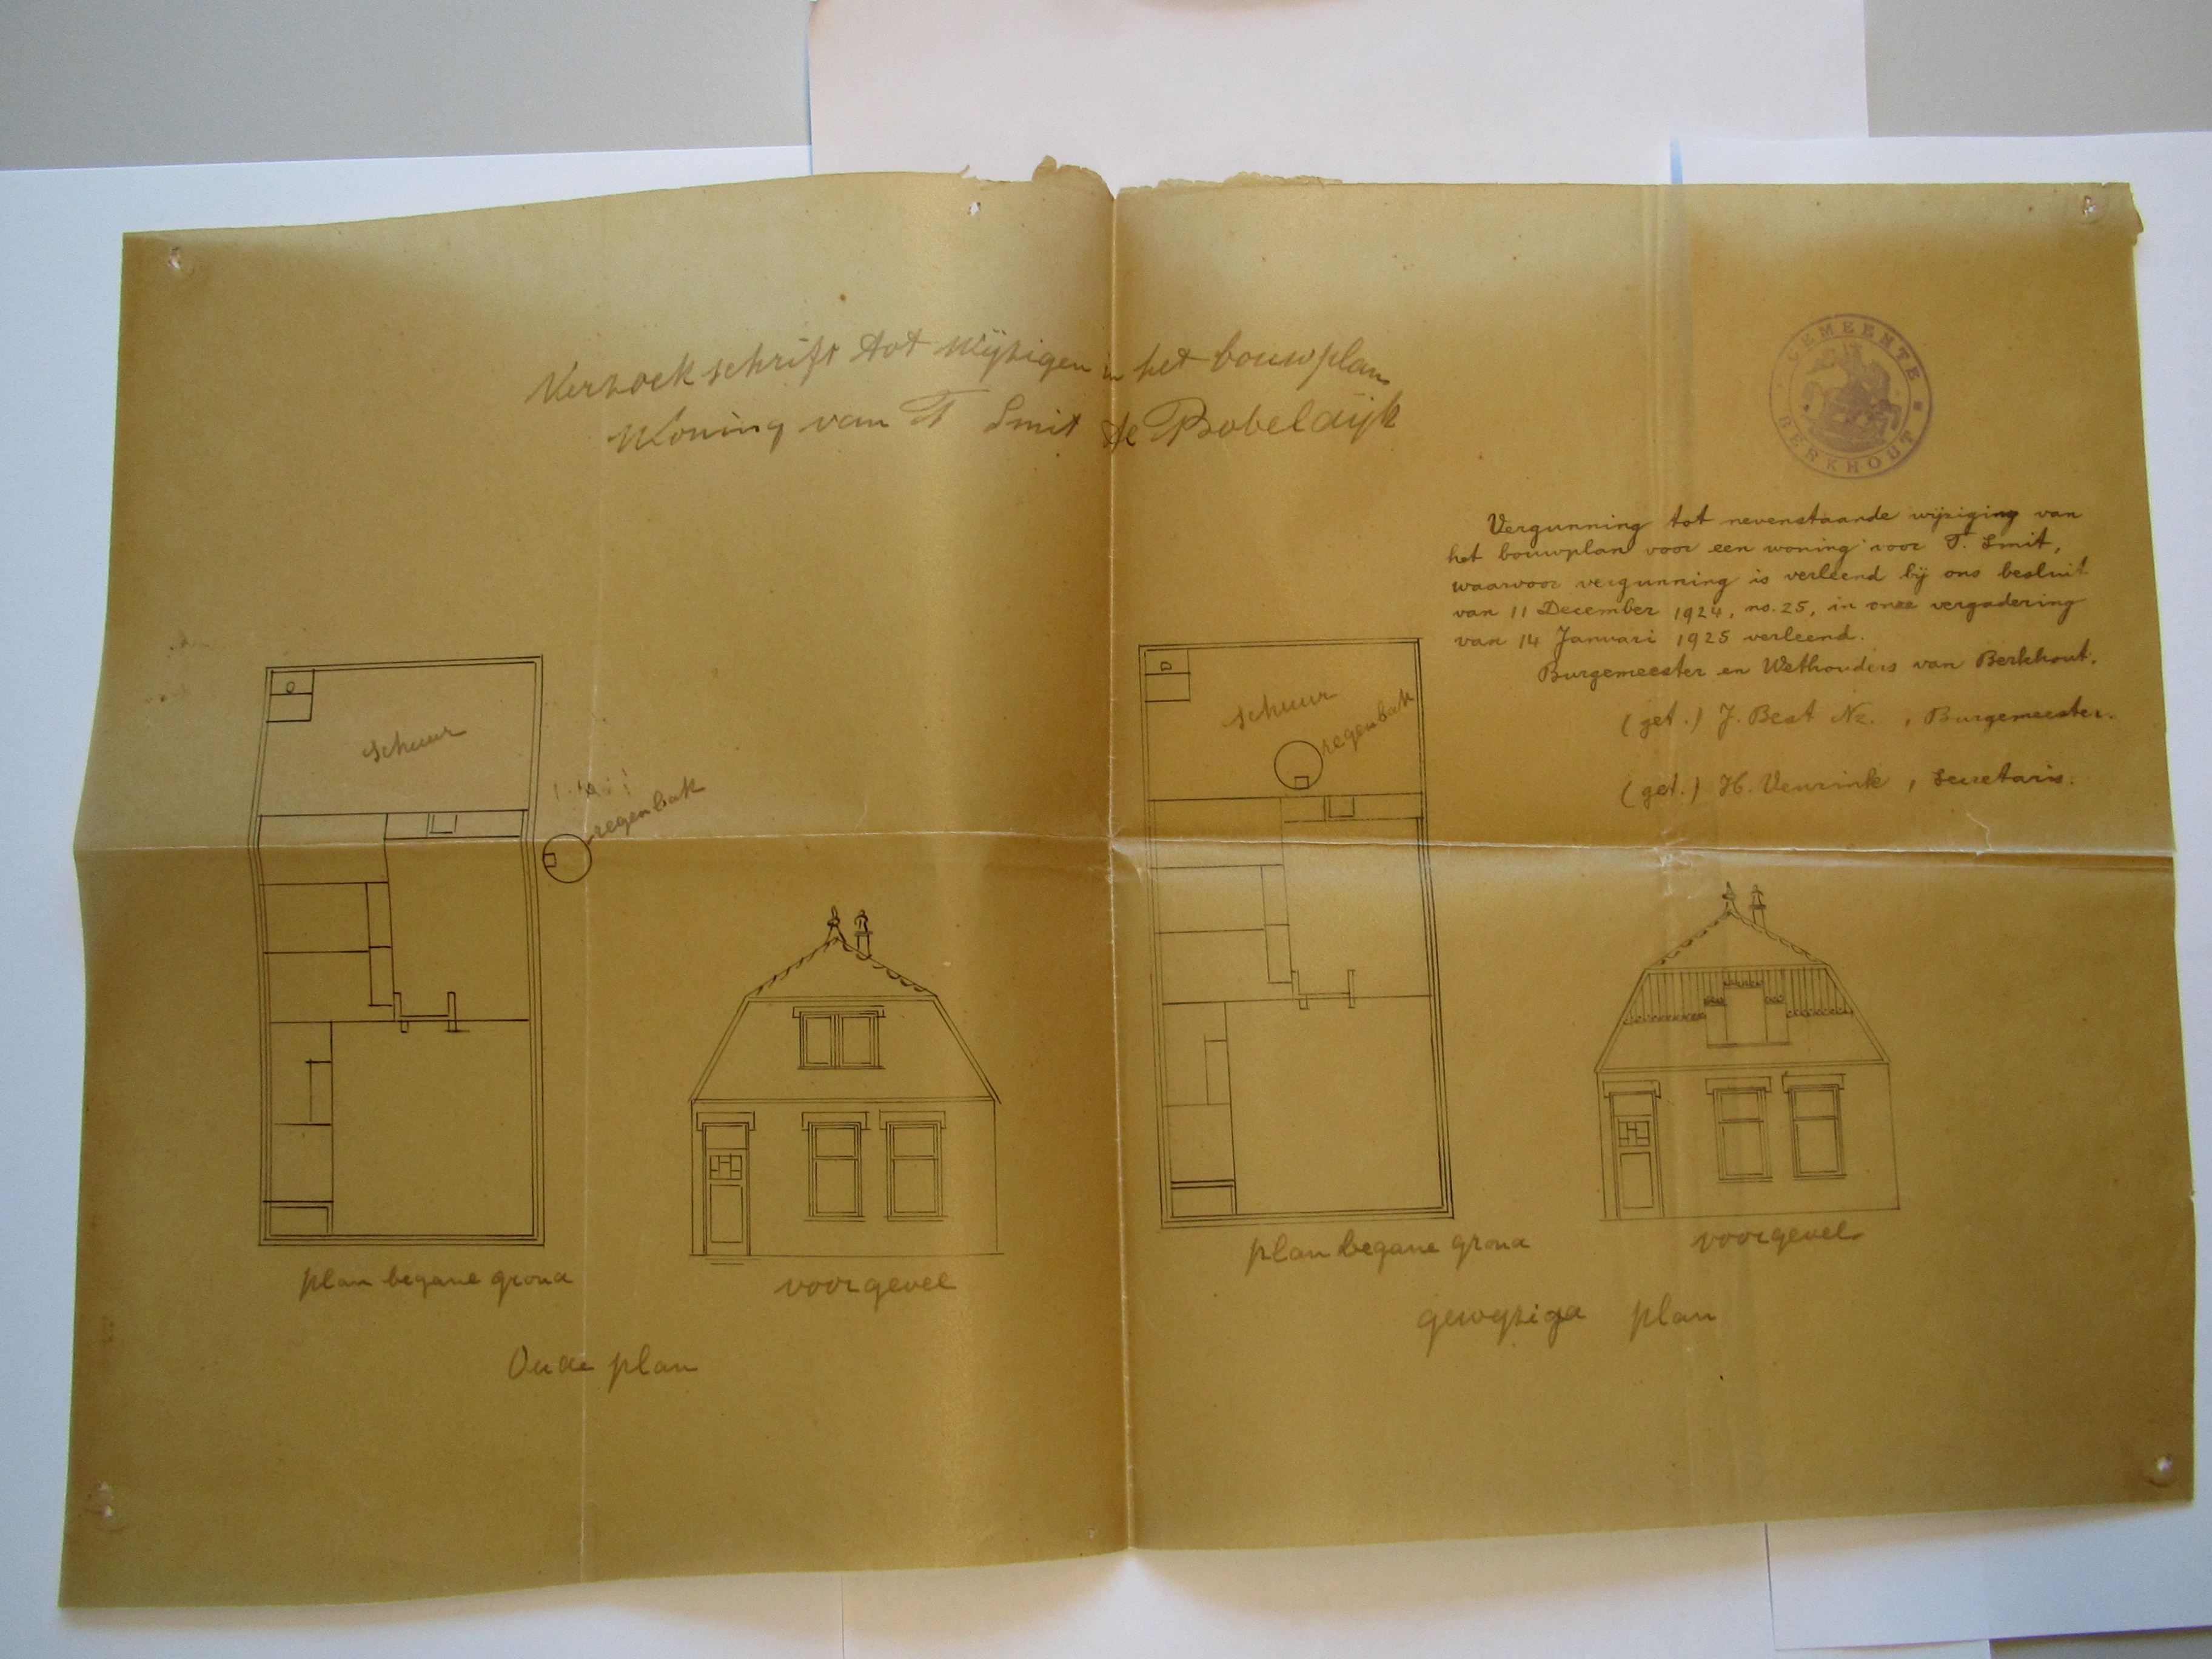 Verzoekschrift tot wijzigen in het bouwplan
Woning van T Smit te Bobeldijk
GEMEENTE
BERKHOUT
Vergunning tot nevenstaande wijziging van
het bouwplan voor een woning voor T. Smit,
waarvoor vergunning is verleend bij ons besluit
van 11 December 1924, no. 25, in onze vergadering
van 14 Januari 1925 verleend.
Burgemeester en Wethouders van Berkhout,
(get.) J. Best Nz. , Burgemeester.
(get.) H. Veurink , Secretaris.
schuur
regenbak
plan begane grond
voorgevel
Oude plan
schuur
regenbak
plan begane grond
voorgevel
gewyzigd plan